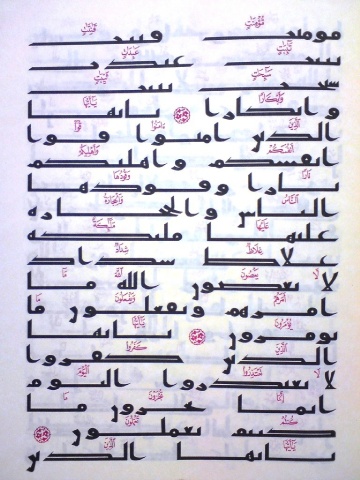 مومنت قنتت
تيبت عبدت
سيحت ثيبت
وابكارا يايها
الذين امنوا قوا
انفسكم واهليكم
نارا وقودها
الناس والحجاره
عليها مليكه
غلاظ شداد
لا يعصون الله ما
امرهم ويفعلون ما
يومرون يايها
الذين كفروا
لا تعتذروا اليوم
انما تجزون ما
كنتم تعملون
يايها الذين